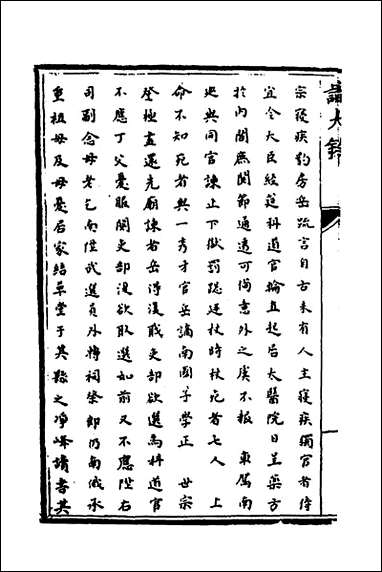 宗寢疾豹房岳疏言自古未有人主寢疾獨宦者侍
宜令大臣經筵科道官輪直起居太醫院日呈藥方
於內閣庶關節通透可備意外之虞不報　車駕南
巡與同官諫止下獄罰跪廷杖時杖死者七人　上
命不知死者與一秀才官岳謫南國子學正　世宗
登極盡還先廟諫者岳得復職吏部欲選為科道官
不應丁父憂服闋吏部復欲取選如前又不應陞右
司副念母老乞南陞武選員外轉祠祭郎仍南俄承
重祖母及母憂居家結草堂于其縣之淨峰讀書其